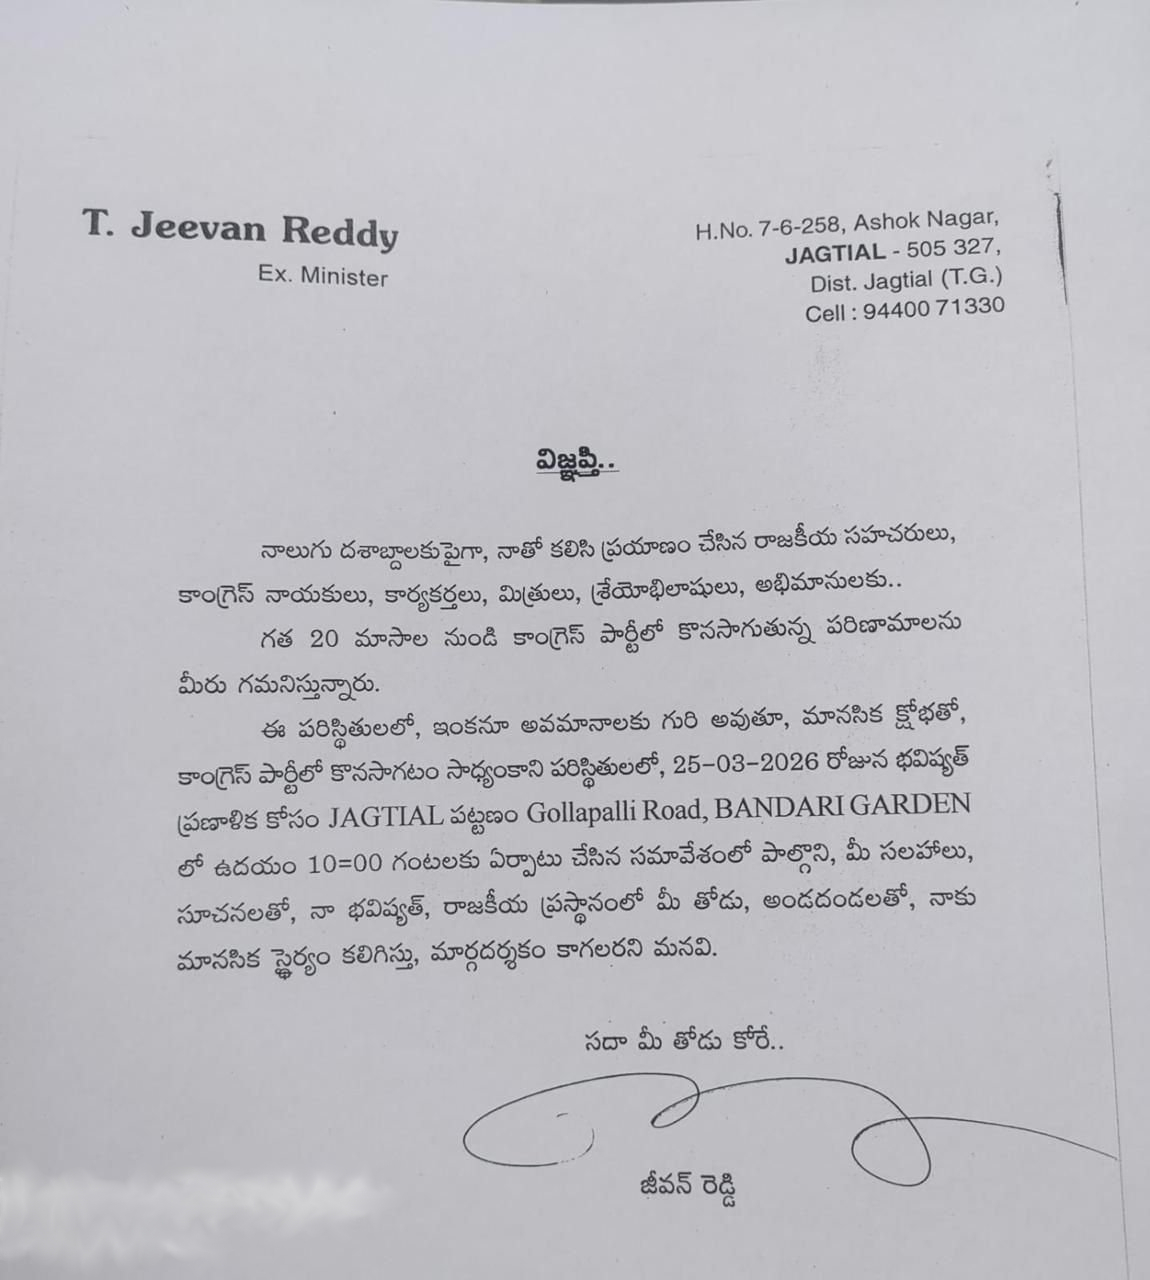 T. Jeevan Reddy
Ex. Minister
H.No. 7-6-258, Ashok Nagar,
JAGTIAL - 505 327,
Dist. Jagtial (T.G.)
Cell : 94400 71330
విజ్ఞప్తి..
నాలుగు దశాబ్దాలకుపైగా, నాతో కలిసి ప్రయాణం చేసిన రాజకీయ సహచరులు,
కాంగ్రెస్ నాయకులు, కార్యకర్తలు, మిత్రులు, శ్రేయోభిలాషులు, అభిమానులకు..
గత 20 మాసాల నుండి కాంగ్రెస్ పార్టీలో కొనసాగుతున్న పరిణామాలను
మీరు గమనిస్తున్నారు.
ఈ పరిస్థితులలో, ఇంకనూ అవమానాలకు గురి అవుతూ, మానసిక క్షోభతో,
కాంగ్రెస్ పార్టీలో కొనసాగటం సాధ్యంకాని పరిస్థితులలో, 25-03-2026 రోజున భవిష్యత్
ప్రణాళిక కోసం JAGTIAL పట్టణం Gollapalli Road, BANDARI GARDEN
లో ఉదయం 10=00 గంటలకు ఏర్పాటు చేసిన సమావేశంలో పాల్గొని, మీ సలహాలు,
సూచనలతో, నా భవిష్యత్, రాజకీయ ప్రస్థానంలో మీ తోడు, అండదండలతో, నాకు
మానసిక స్థైర్యం కలిగిస్తు, మార్గదర్శకం కాగలరని మనవి.
సదా మీ తోడు కోరే..
జీవన్ రెడ్డి